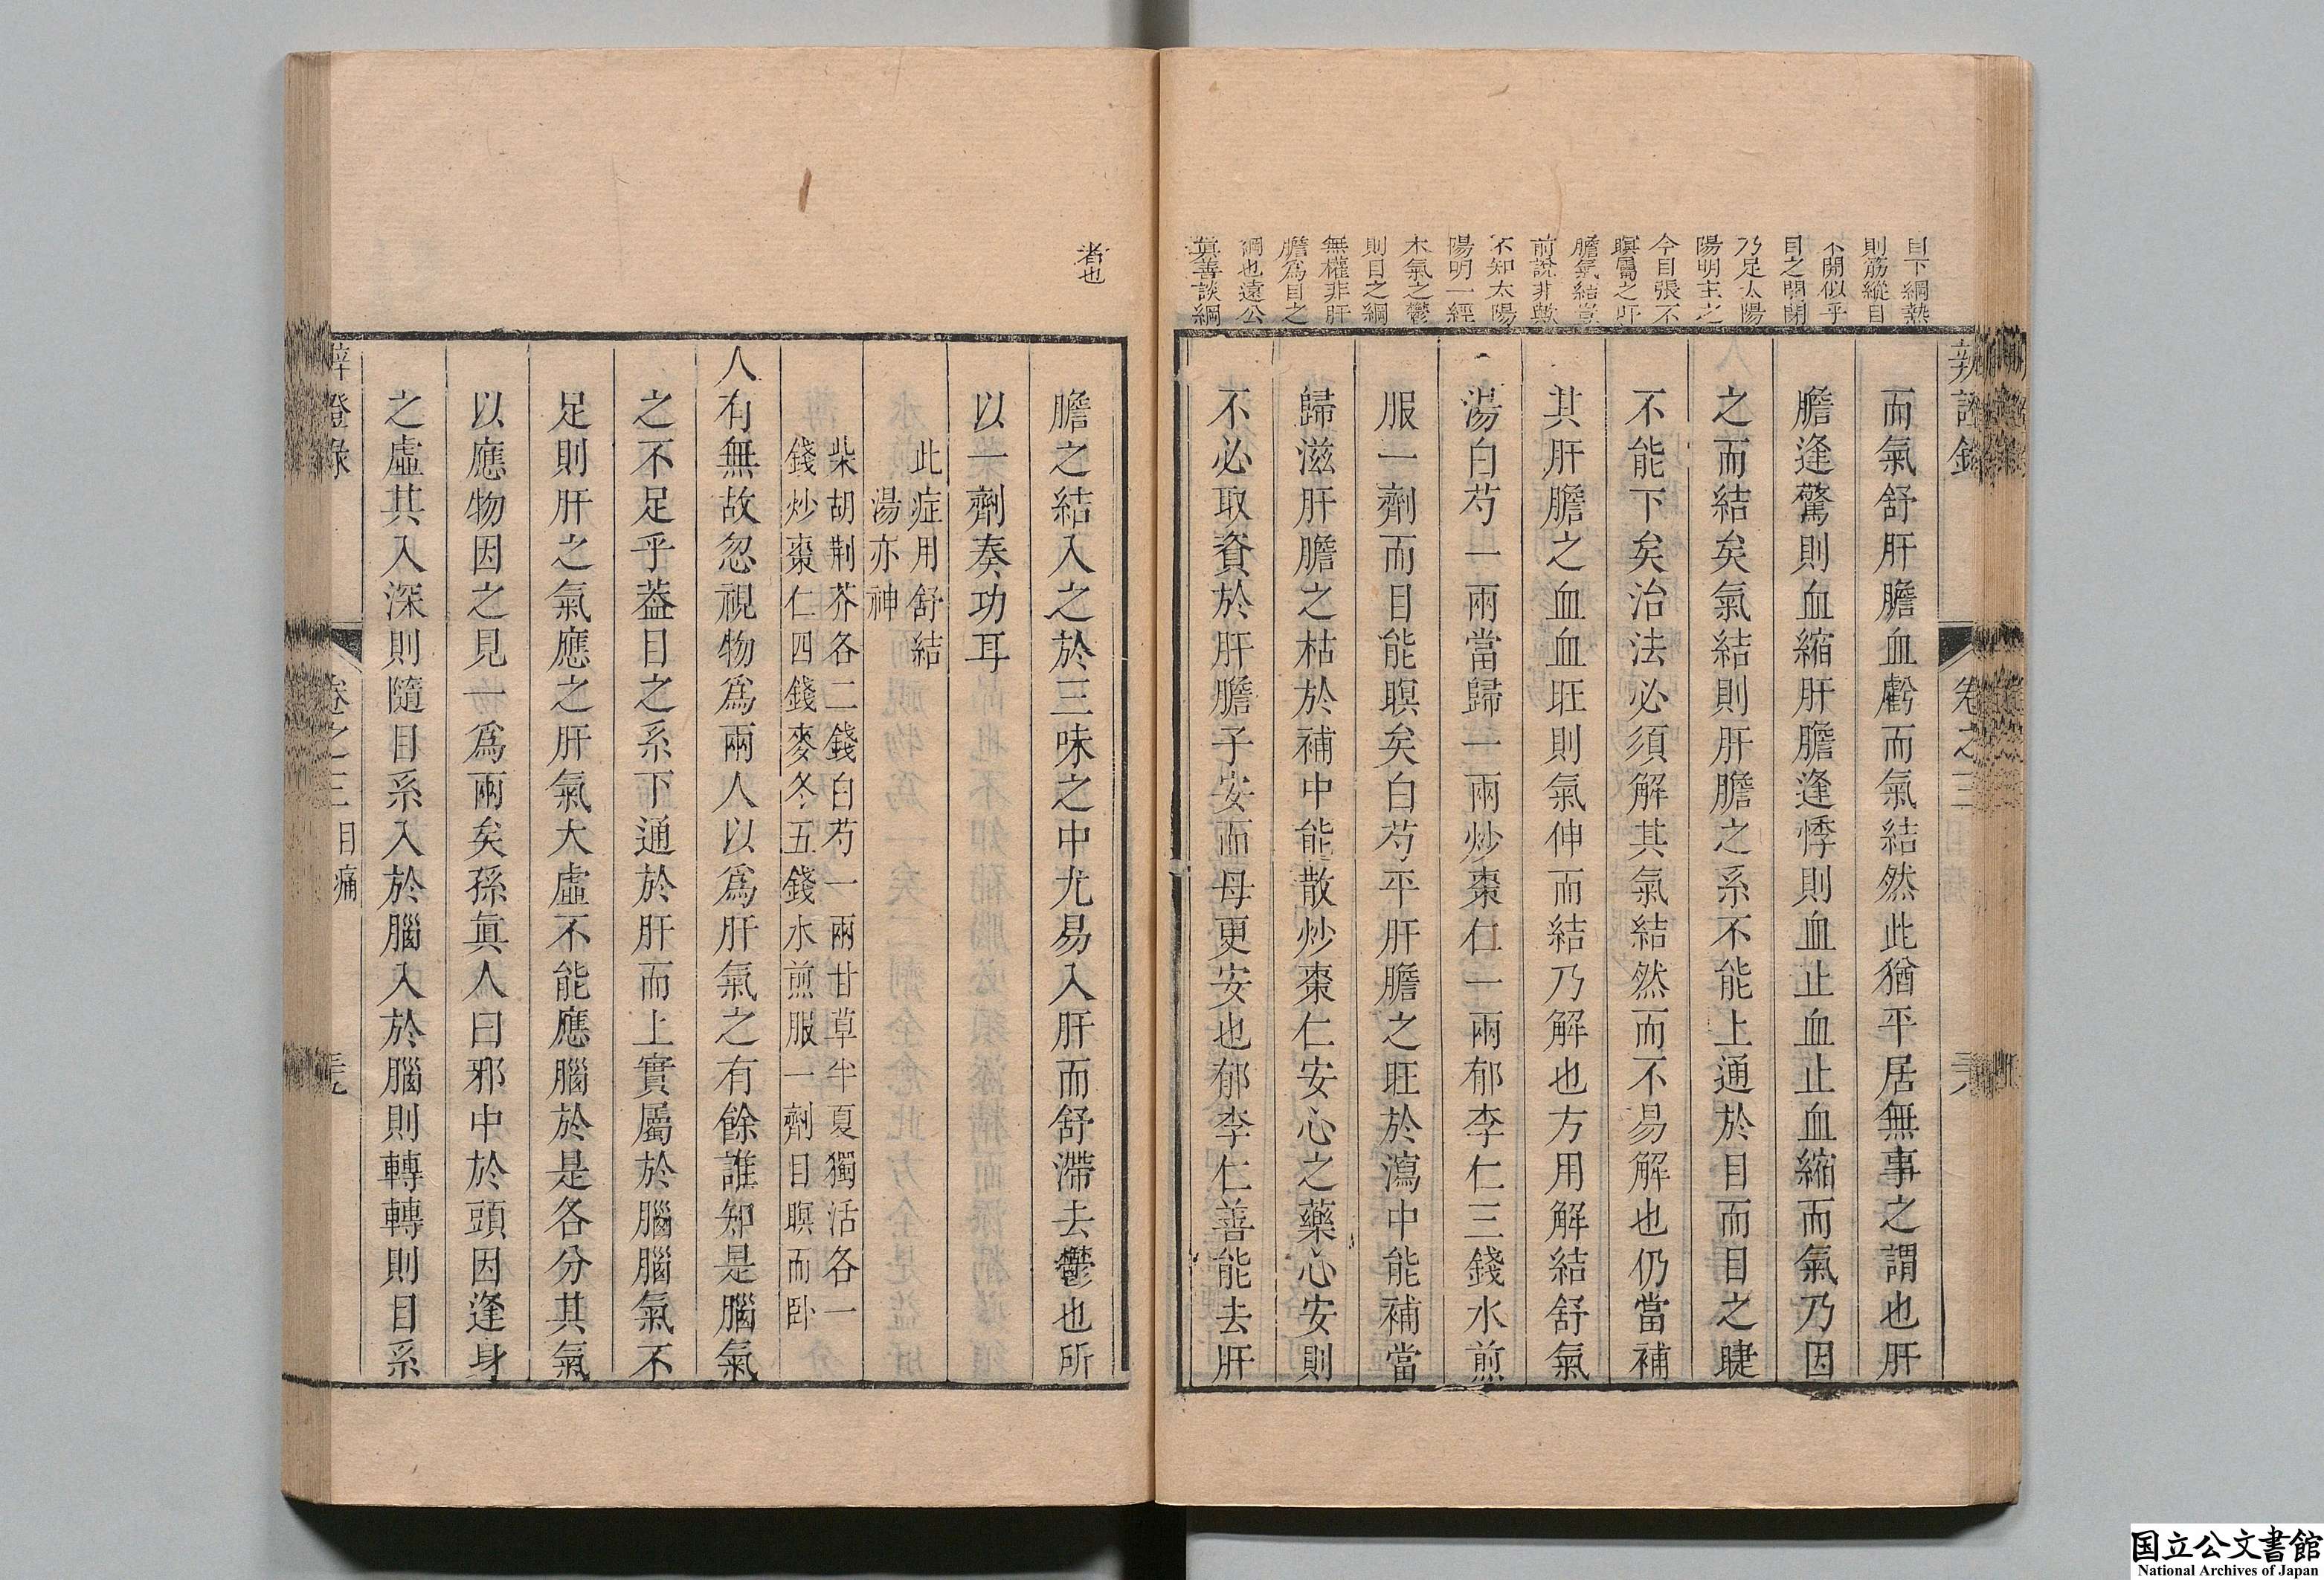 目下綱熱
則筋縱目
不開似乎
目之開閉
乃足太陽
陽明主之
今目張不
瞑屬之肝
膽氣結豈
前說非歟
不知太陽
陽明一經
木氣之鬱
則目之綱
無權非肝
膽爲目之
綱也遠公
眞善談綱
辨證錄 卷之三
而氣舒肝膽血虧而氣結然此猶平居無事之謂也肝
膽逢驚則血縮肝膽逢悸則血止血止血縮而氣乃因
之而結矣氣結則肝膽之系不能上通於目而目之睫
不能下矣治法必須解其氣結然而不易解也仍當補
其肝膽之血血旺則氣伸而結乃解也方用解結舒氣
湯白芍一兩當歸一兩炒棗仁一兩郁李仁三錢水煎
服一劑而目能瞑矣白芍平肝膽之旺於瀉中能補當
歸滋肝膽之枯於補中能散炒棗仁安心之藥心安則
不必取資於肝膽子安而母更安也郁李仁善能去肝
者也
膽之結入之於三味之中尤易入肝而舒滯去鬱也所
以一劑奏功耳
此症用舒結
湯亦神
柴胡荆芥各二錢白芍一兩甘草半夏獨活各一
錢炒棗仁四錢麥冬五錢水煎服一劑目瞑而卧
人有無故忽視物爲兩人以爲肝氣之有餘誰知是腦氣
之不足乎葢目之系下通於肝而上實屬於腦腦氣不
足則肝之氣應之肝氣大虛不能應腦於是各分其氣
以應物因之見一爲兩矣孫眞人曰邪中於頭因逢身
之虛其入深則隨目系入於腦入於腦則轉轉則目系
辨證錄 卷之三 目痛
国立公文書館
National Archives of Japan